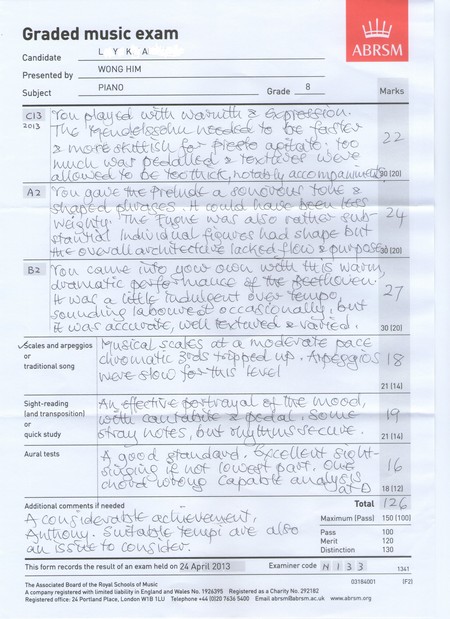 Graded music exam
ABRSM
Candidate LYKA
Presented by WONG HIM
Subject PIANO Grade 8 Marks
C13 2013 You played with warmth & expression.
The Mendelssohn needed to be faster
& more skittish for presto agitato. Too
much was pedalled & textures were
allowed to be too thick, notably accompaniments 22
30 (20)
A2 You gave the Prelude a sonorous tone &
shaped phrases. It could have been less
weighty. The Fugue was also rather sub-
stantial. Individual figures had shape but
the overall architecture lacked flow & purpose. 24
30 (20)
B2 You came into your own with this warm,
dramatic performance of the Beethoven.
It was a little indulgent over tempo,
sounding laboured occasionally, but
it was accurate, well textured & varied. 27
30 (20)
Scales and arpeggios
or
traditional song
Musical scales at a moderate pace
chromatic 3rds tripped up. Arpeggios
were slow for this level 18
21 (14)
Sight-reading
(and transposition)
or
quick study
An effective portrayal of the mood,
with cantabile & pedal. Some
stray notes, but rhythms secure. 19
21 (14)
Aural tests
A good standard. Excellent sight-
singing if not lowest part. One
chord wrong. Capable analysis
at D 16
18 (12)
Additional comments if needed
Total 126
A considerable achievement,
Anthony. Suitable tempi are also
an issue to consider.
Maximum (Pass) 150 (100)
Pass 100
Merit 120
Distinction 130
This form records the result of an exam held on 24 April 2013 Examiner code N133 1341
The Associated Board of the Royal Schools of Music 03184001 (F2)
A company registered with limited liability in England and Wales No. 1926395 Registered as a Charity No. 292182
Registered office: 24 Portland Place, London W1B 1LU Telephone +44 (0)20 7636 5400 Email abrsm@abrsm.ac.uk www.abrsm.org